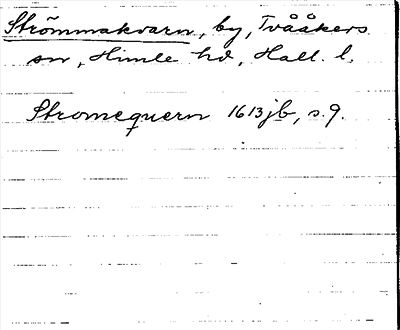 Strömmakvarn, by, Tvååkers
sn, Himle hd, Hall. l.
Stromequern 1613 jb, s. 9.